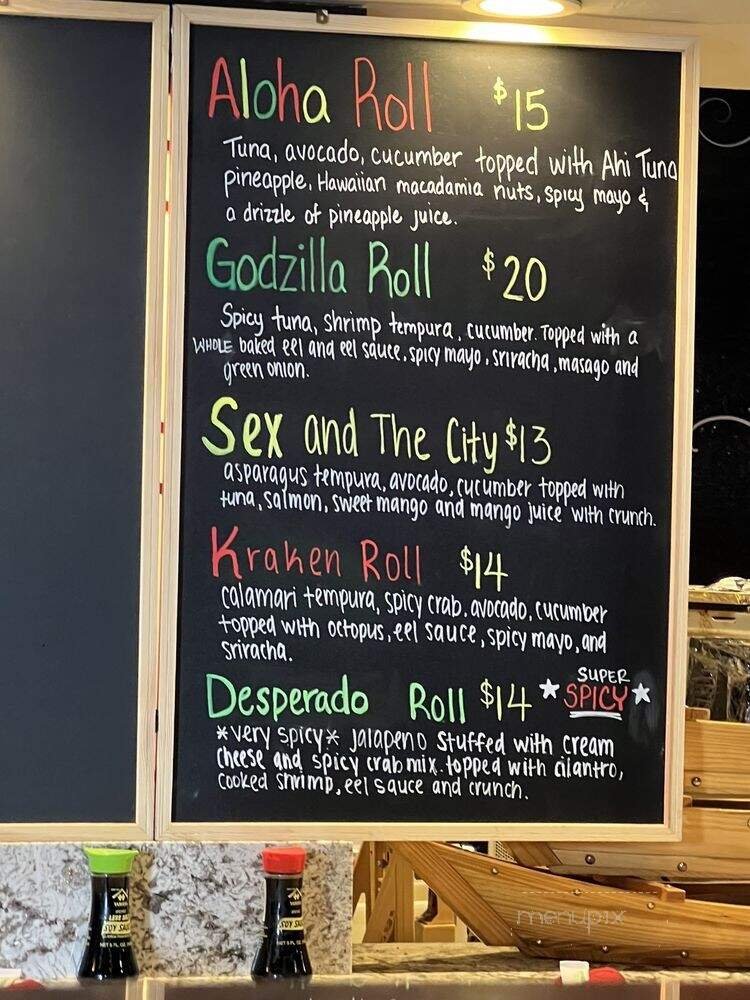 Aloha Roll $15
Tuna, avocado, cucumber topped with Ahi Tuna
pineapple, Hawaiian macadamia nuts, spicy mayo &
a drizzle of pineapple juice.
Godzilla Roll $20
Spicy tuna, shrimp tempura, cucumber. Topped with a
WHOLE baked eel and eel sauce, spicy mayo, sriracha, masago and
green onion.
Sex and The City $13
asparagus tempura, avocado, cucumber topped with
tuna, salmon, sweet mango and mango juice with crunch.
Kraken Roll $14
calamari tempura, spicy crab, avocado, cucumber
topped with octopus, eel sauce, spicy mayo, and
sriracha.
SUPER
Desperado Roll $14 ★ SPICY ★
*very spicy* jalapeno stuffed with cream
cheese and spicy crab mix. topped with cilantro,
cooked shrimp, eel sauce and crunch.
menupix
LESS SALT
SOY SAUCE
SOY SAUCE